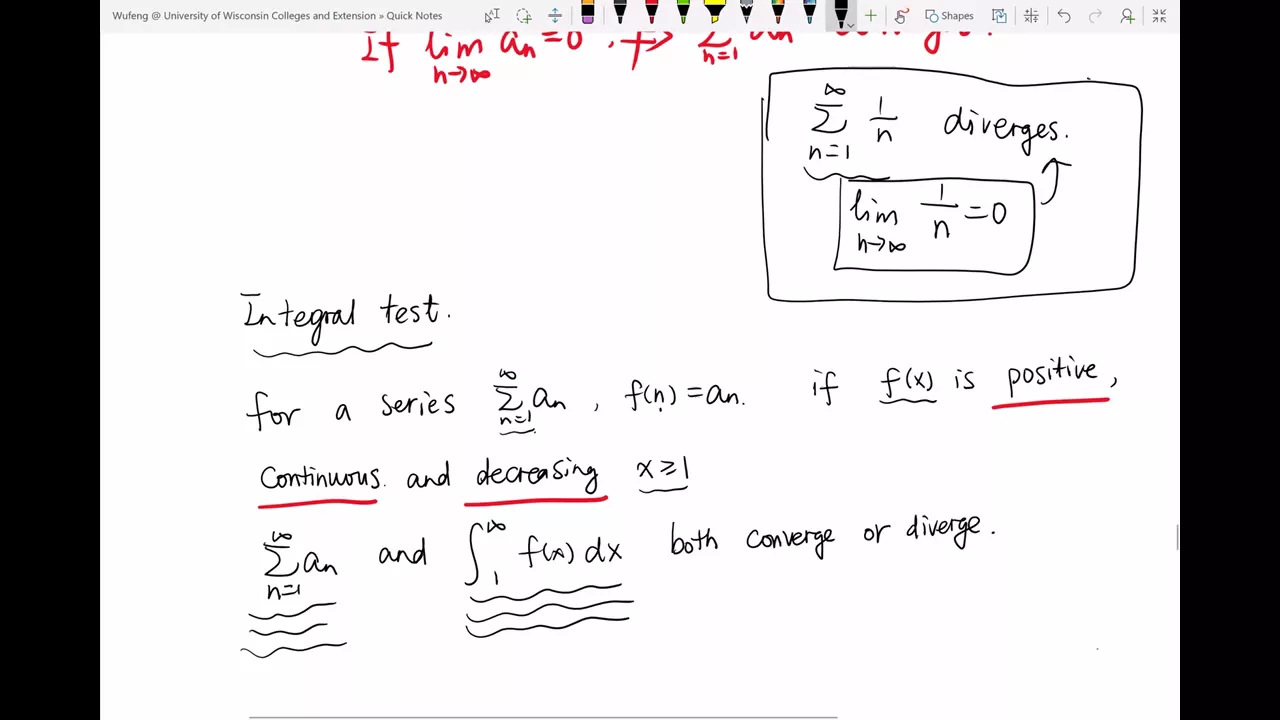 Wufeng @ University of Wisconsin Colleges and Extension » Quick Notes
Shapes
If lim n→∞ an = 0, ⇏ ∑ n=1 an
∞ ∑ n=1 1/n diverges.
lim n→∞ 1/n = 0
Integral test.
for a series ∞ ∑ n=1 an , f(n) = an. if f(x) is positive,
continuous. and decreasing x ≥ 1
∞ ∑ n=1 an and ∫ 1 ∞ f(x) dx both converge or diverge.